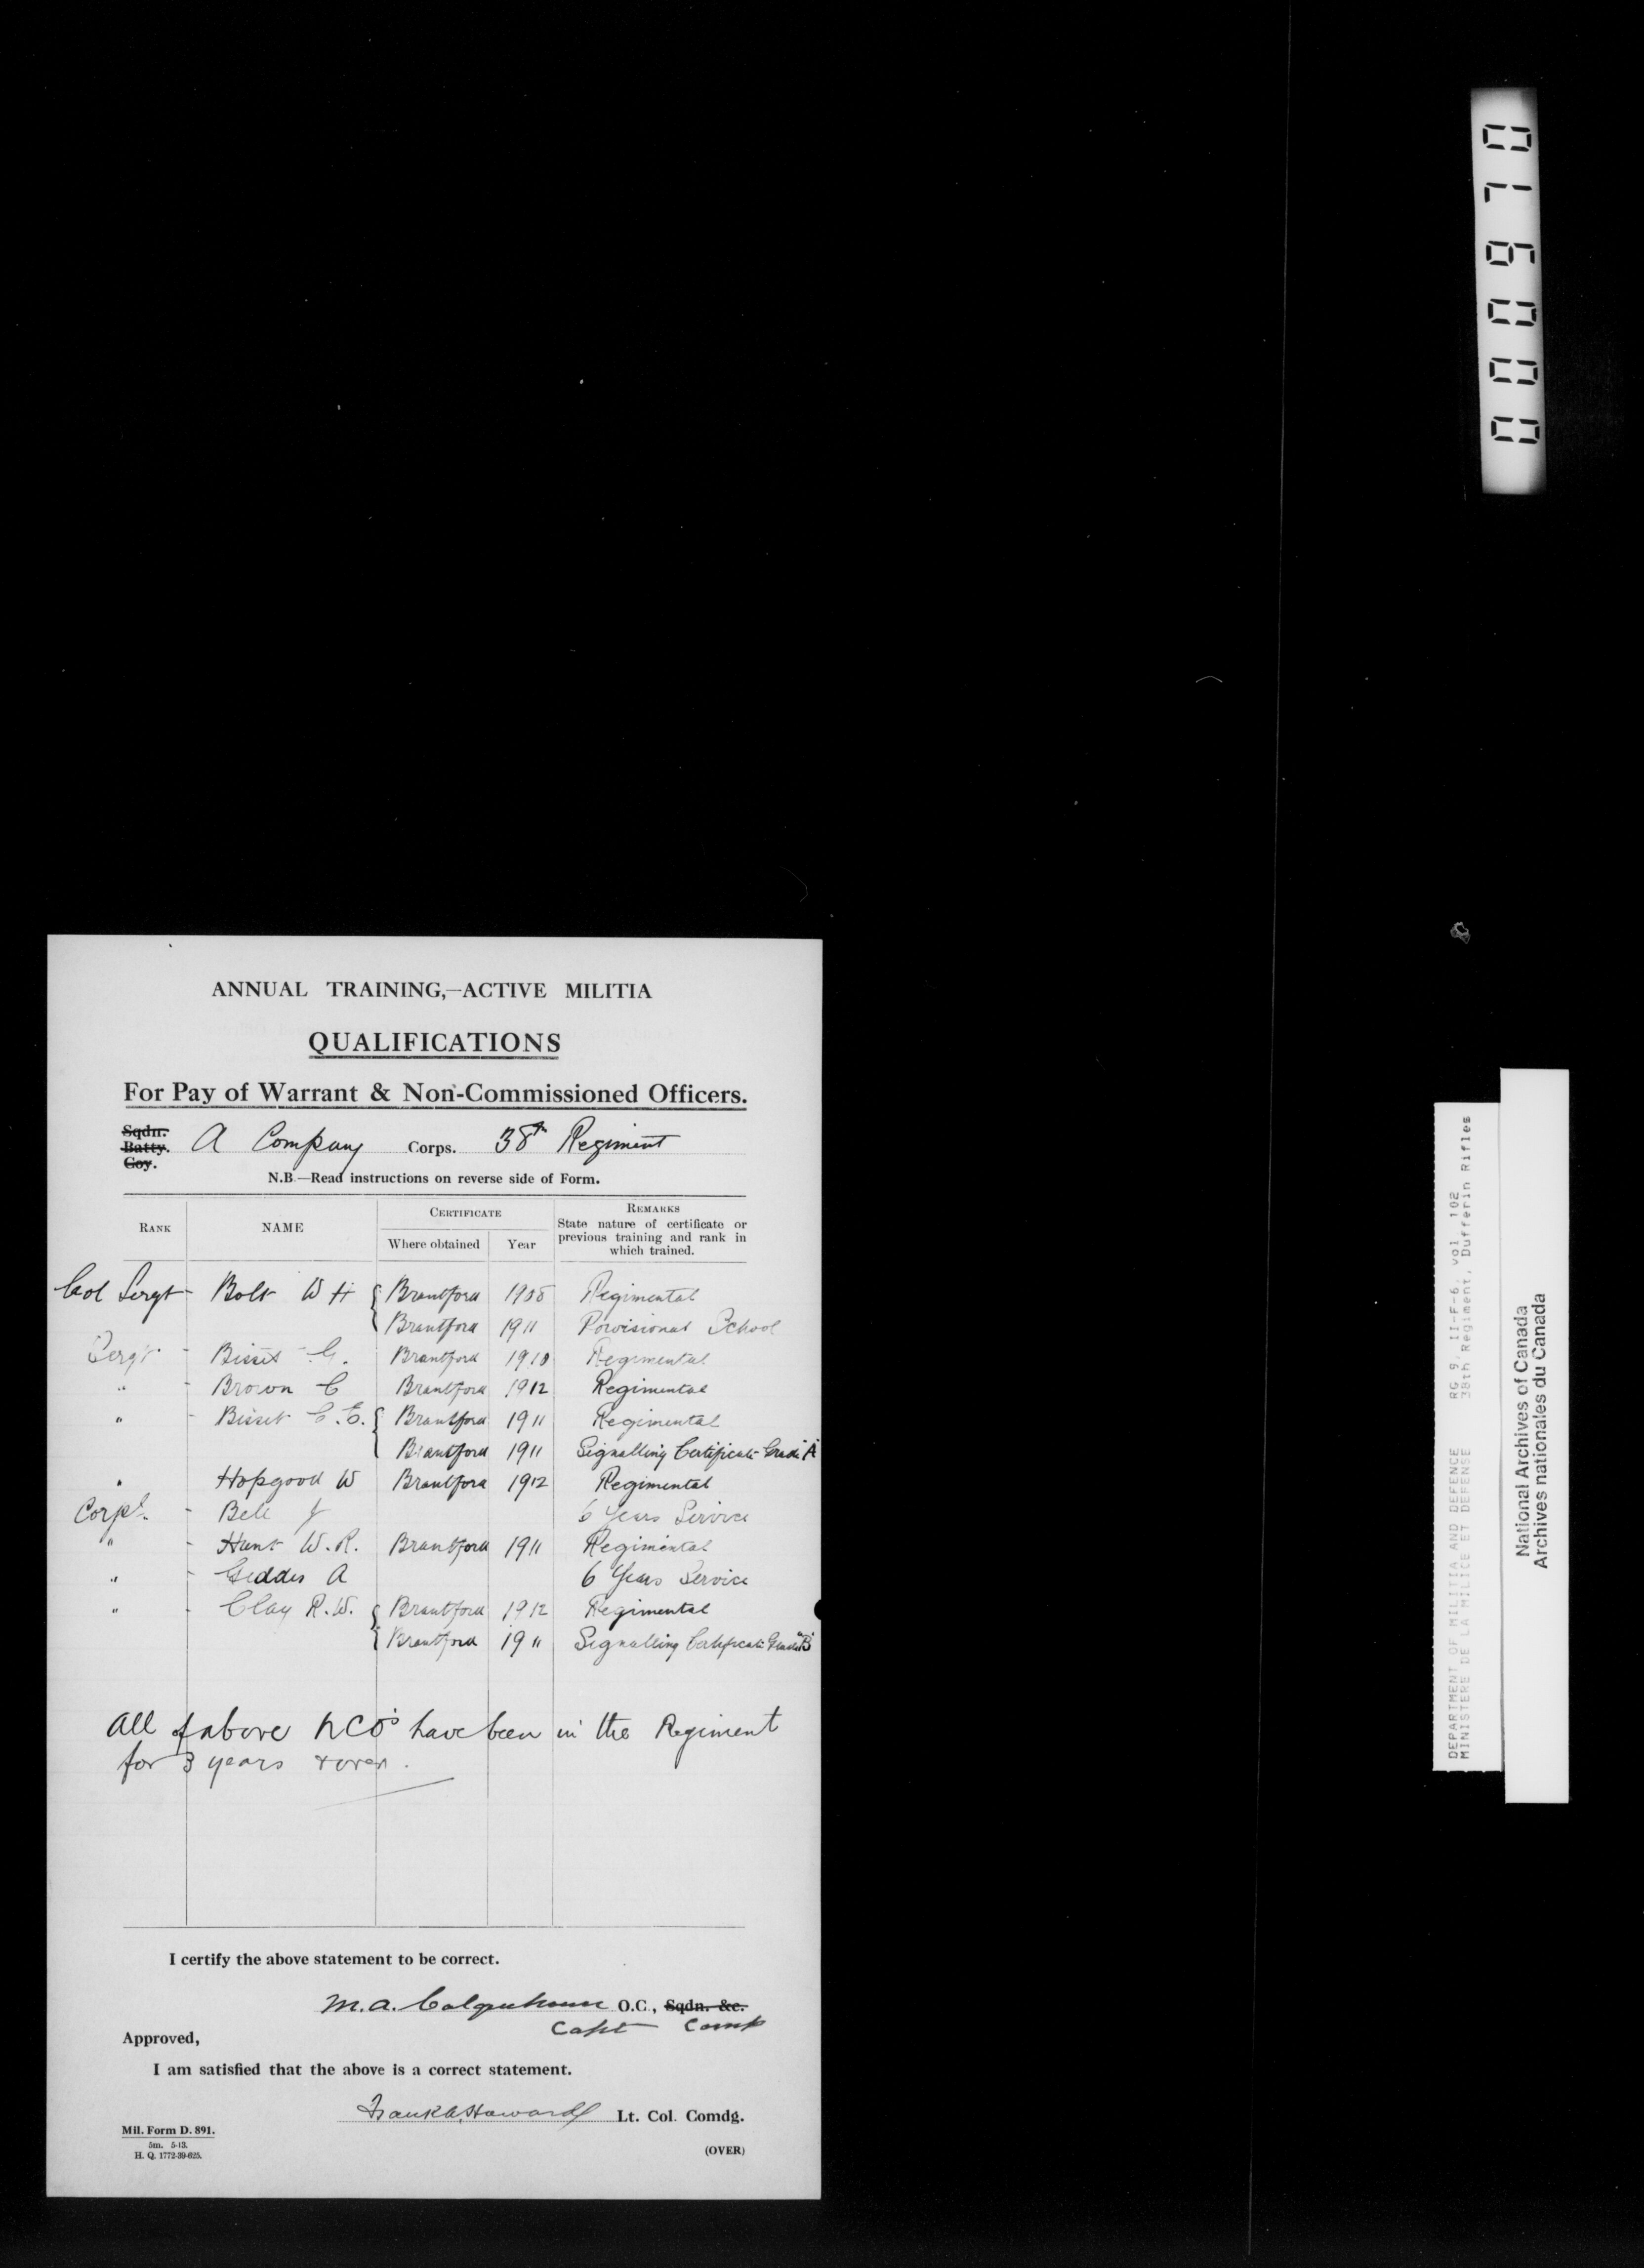 ANNUAL TRAINING,—ACTIVE MILITIA
QUALIFICATIONS
For Pay of Warrant & Non-Commissioned Officers.
Sqdn.
Batty.
Coy.
A Company Corps. 38th Regiment
N.B.—Read instructions on reverse side of Form.
RANK NAME CERTIFICATE REMARKS
Where obtained Year State nature of certificate or previous training and rank in which trained.
Col Sergt - Bolt W H Brantford 1908 Regimental
Brantford 1911 Provisional School
Sergt - Bisset G. Brantford 1910 Regimental
" - Brown C Brantford 1912 Regimental
" - Bisset C.E. Brantford 1911 Regimental
Brantford 1911 Signalling Certificate Grade "A"
" Hopgood W Brantford 1912 Regimental
Corpl. - Bell J 6 Years Service
" - Hunt W.R. Brantford 1911 Regimental
" - Geddes A 6 Years Service
" - Clay R.W. Brantford 1912 Regimental
Brantford 1911 Signalling Certificate Grade "B"
All of above NCO's have been in the Regiment
for 3 years & over.
I certify the above statement to be correct.
M.A. Colquhoun O.C., Sqdn. &c.
Capt Comp
Approved,
I am satisfied that the above is a correct statement.
Frank A. Howard Lt. Col. Comdg.
Mil. Form D. 891.
5m. 5-13.
H. Q. 1772-39-625.
(OVER)
000970
DEPARTMENT OF MILITIA AND DEFENCE RG 9, II-F-6, vol. 102
MINISTERE DE LA MILICE ET DEFENSE 38th Regiment, Dufferin Rifles
National Archives of Canada
Archives nationales du Canada